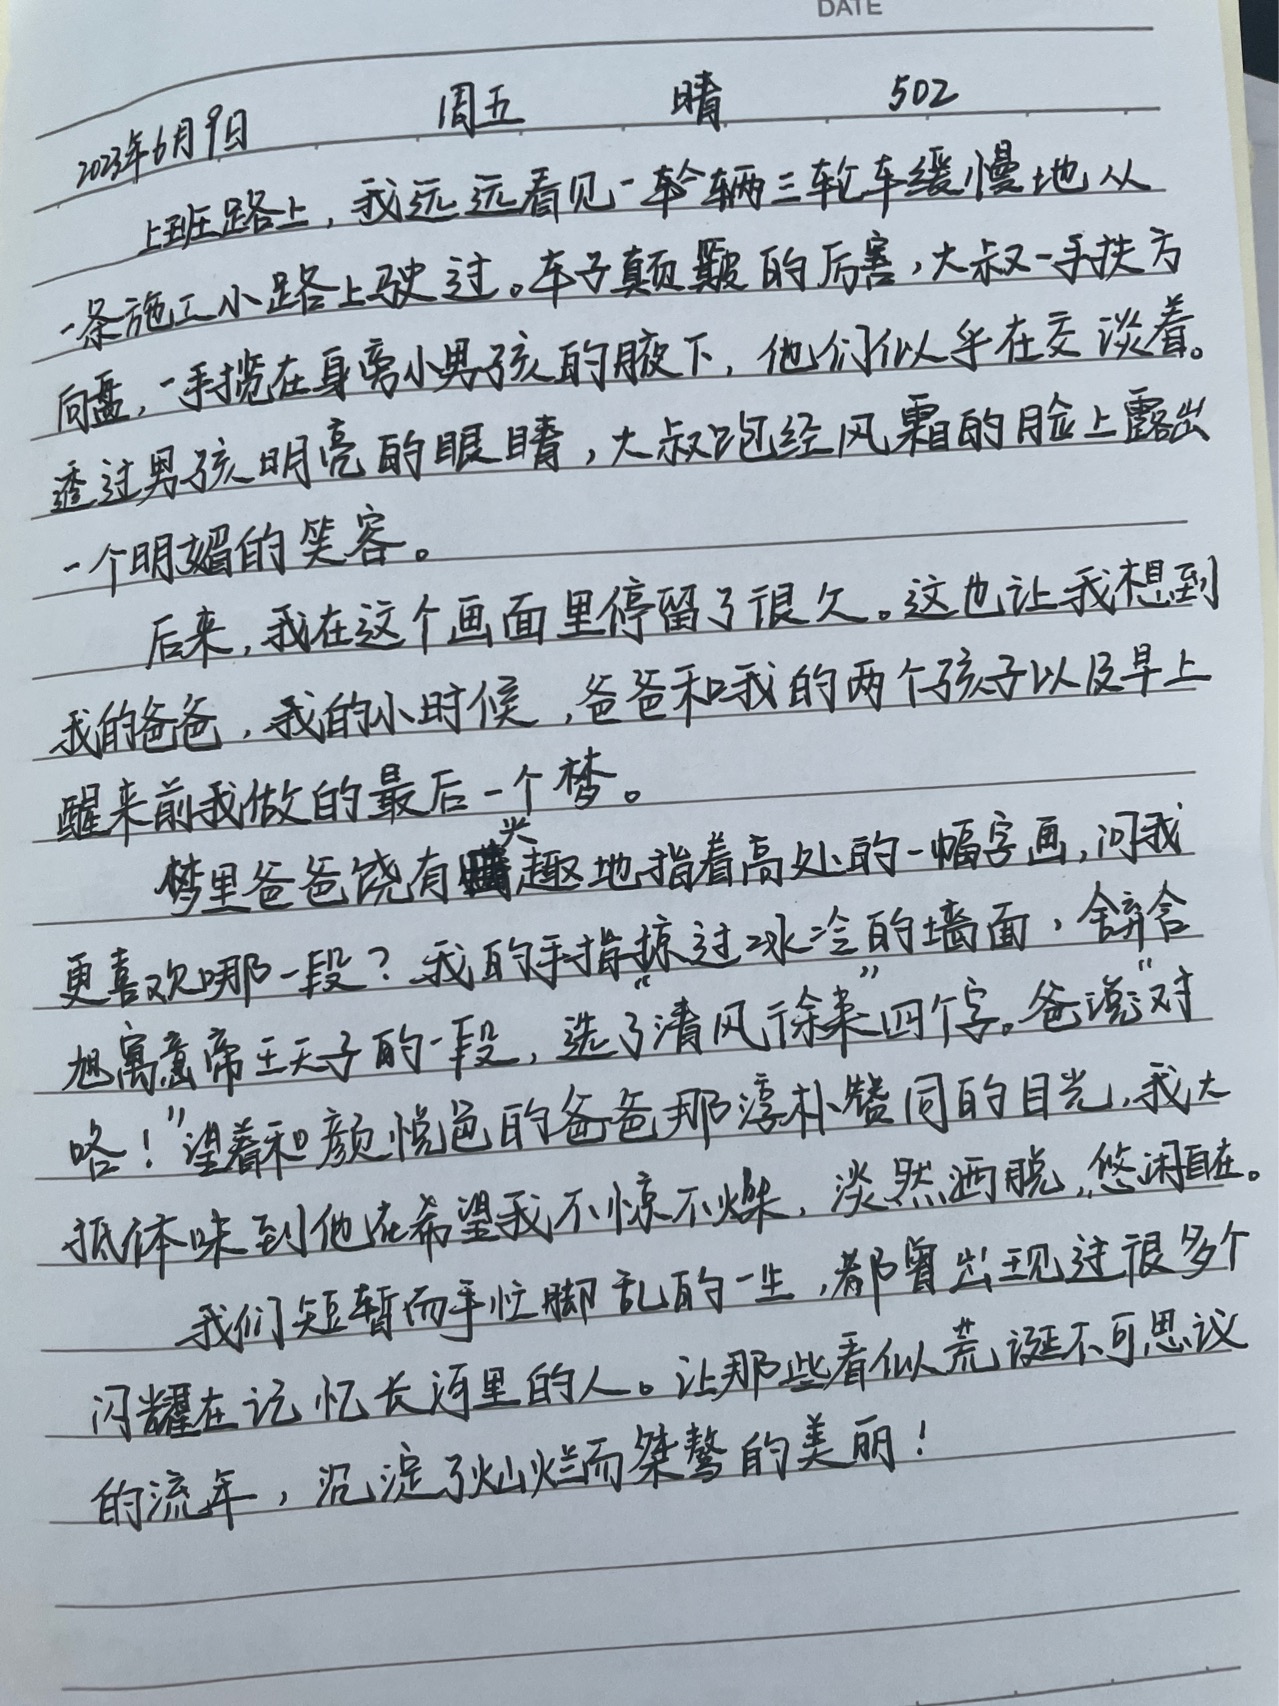 DATE
2023年6月9日 周五 晴 502
上班路上，我远远看见一轮辆三轮车缓慢地从
一条施工小路上驶过。车子颠簸的厉害，大叔一手扶方
向盘，一手揽在身旁小男孩的腋下，他们似乎在交谈着。
透过男孩明亮的眼睛，大叔饱经风霜的脸上露出
一个明媚的笑容。
后来，我在这个画面里停留了很久。这也让我想到
我的爸爸，我的小时候，爸爸和我的两个孩子以及早上
醒来前我做的最后一个梦。
梦里爸爸饶有兴趣地指着高处的一幅字画，问我
更喜欢哪一段？我的手指掠过冰冷的墙面，舍弃含
旭寓意帝王天子的一段，选了“清风徐来”四个字。爸说“对
咯！”望着和颜悦色的爸爸那淳朴赞同的目光，我大
抵体味到他在希望我不惊不燥，淡然洒脱，悠闲自在。
我们短暂而手忙脚乱的一生，都曾出现过很多个
闪耀在记忆长河里的人。让那些看似荒诞不可思议
的流年，沉淀了灿烂而桀骜的美丽！